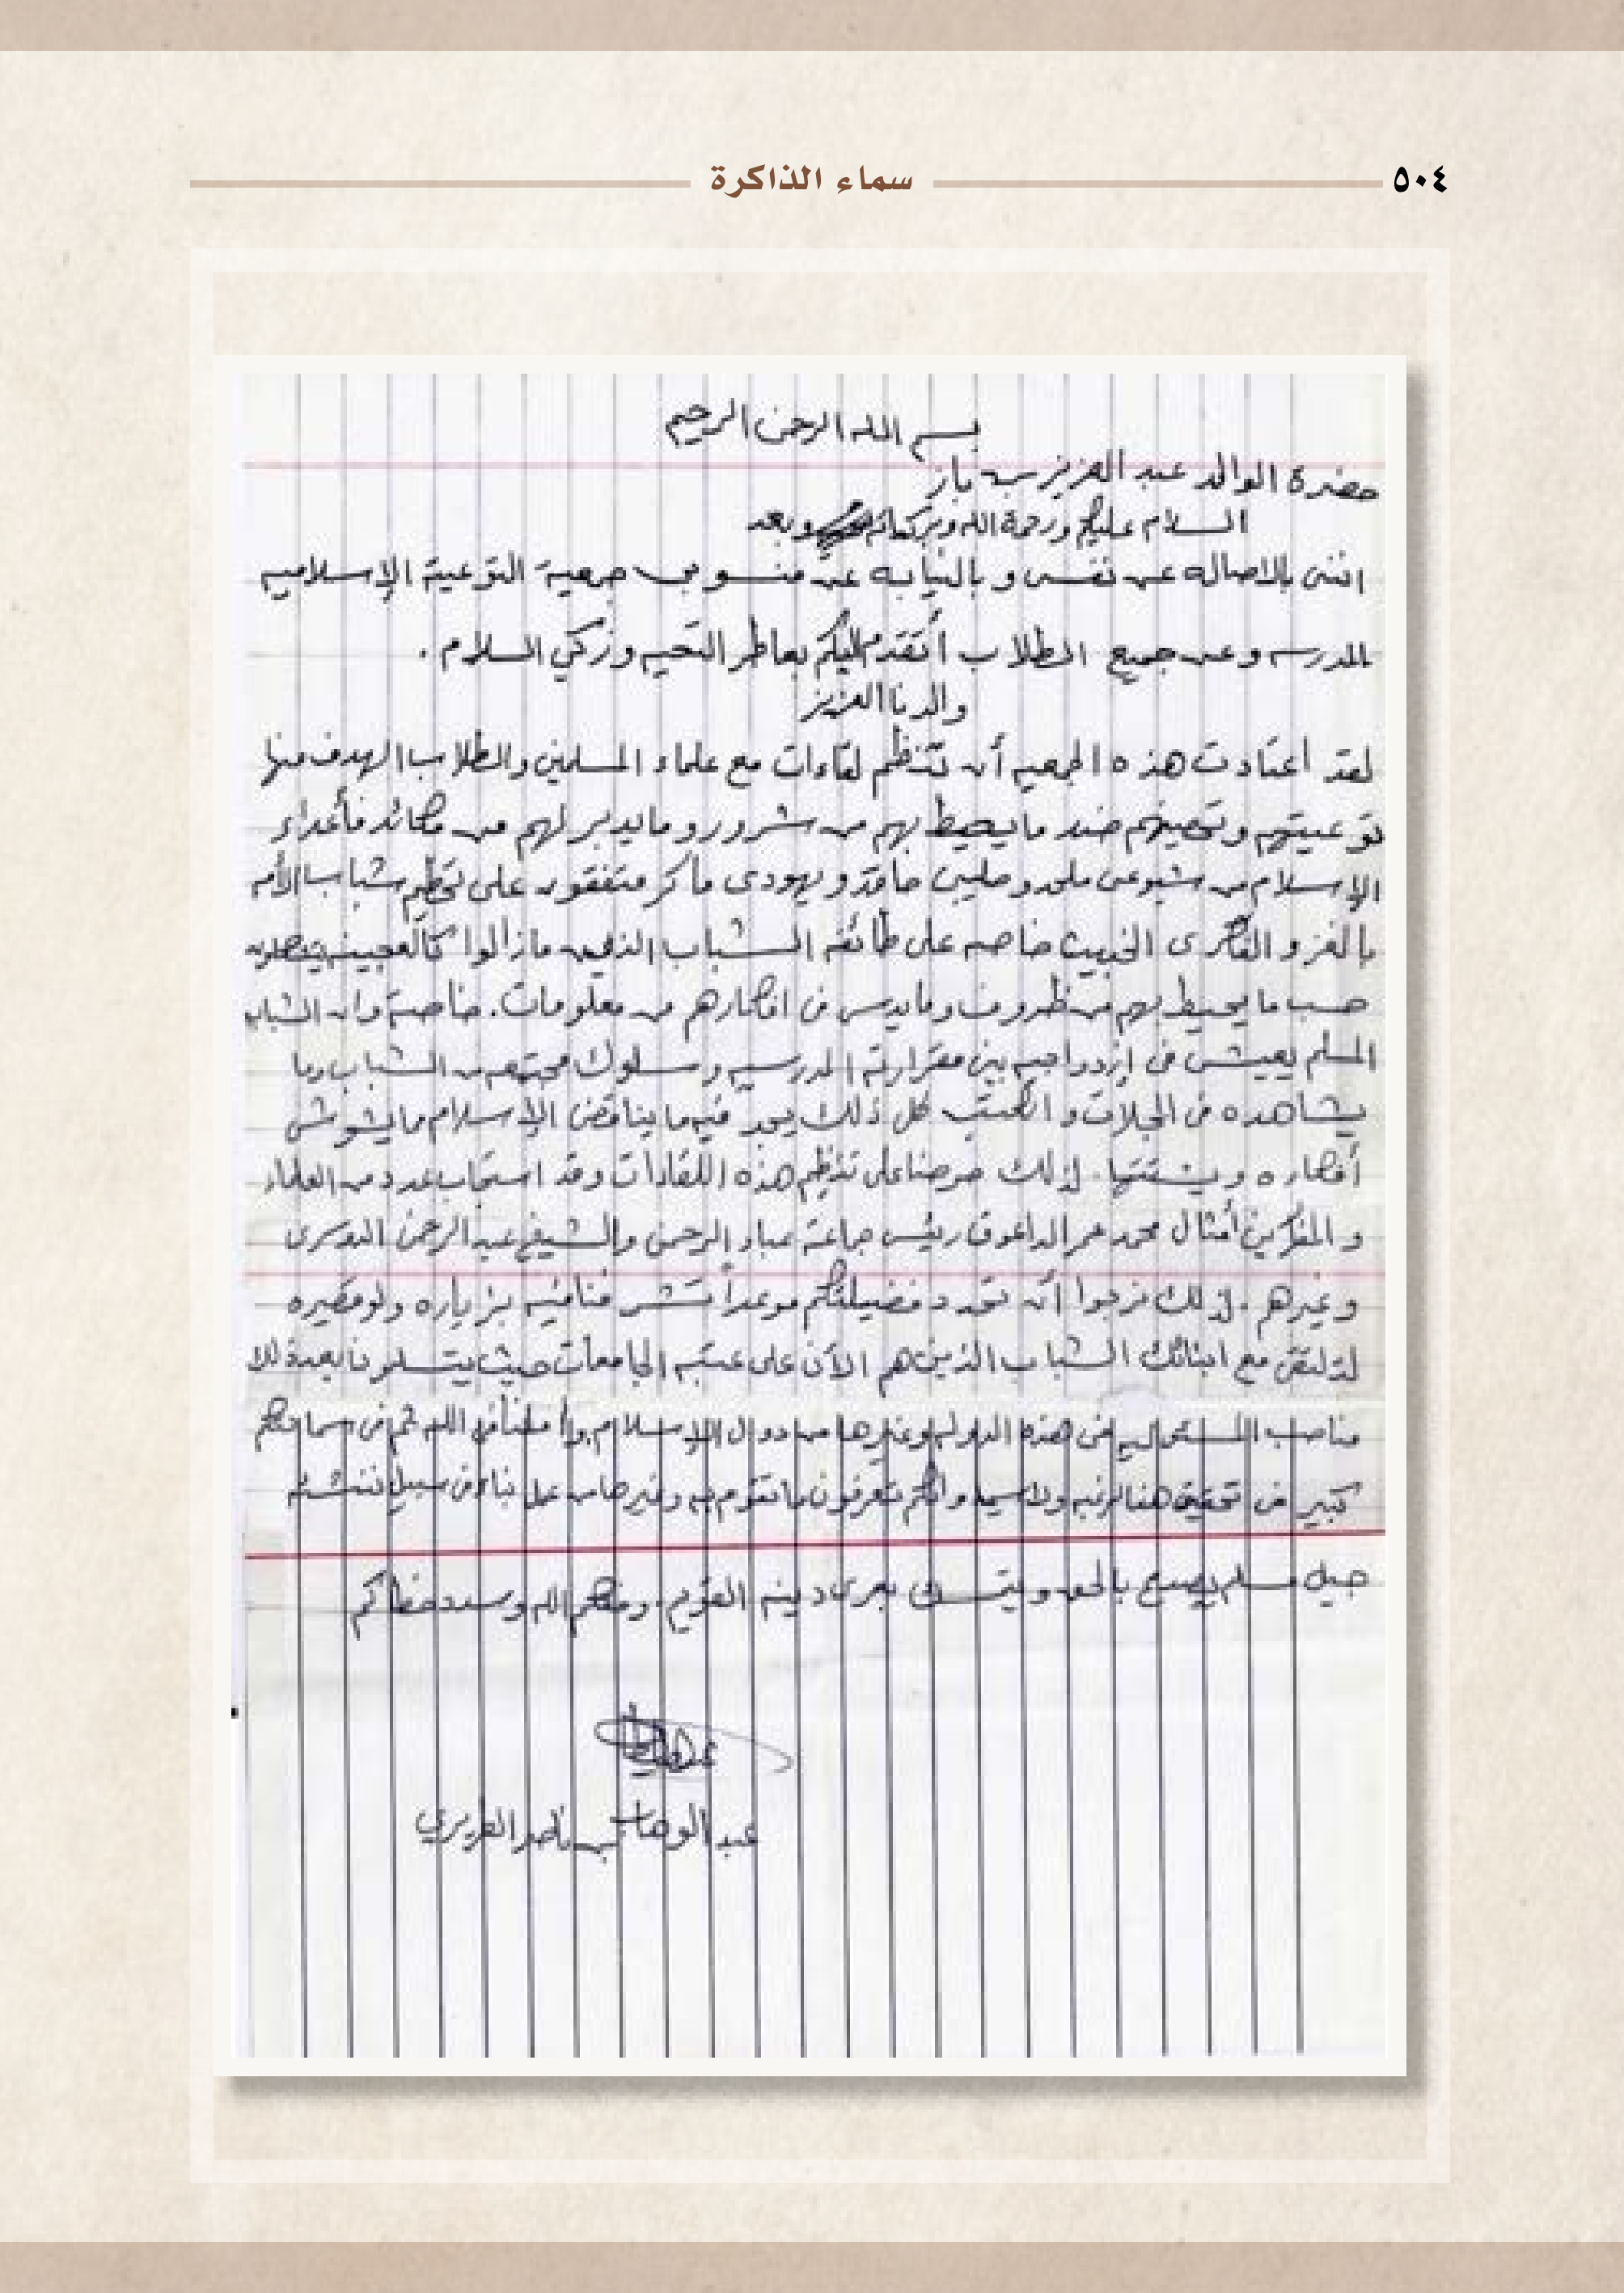 ٥٠٤
سماء الذاكرة
بسم الله الرحمن الرحيم
حضرة الوالد عبد العزيز بن باز
السلام عليكم ورحمة الله وبركاته وبعد
انني بالاصاله عن نفسي و بالنيابه عن منسوبي جمعية التوعية الإسلاميه
بالمدرسه وعن جميع الطلاب أتقدم إليكم بعاطر التحيه وزكي السلام .
والدنا العزيز
لقد اعتادت هذه الجمعيه أن تنظم لقاءات مع علماء المسلمين والطلاب الهدف منها
توعيتهم وتحصينهم ضد ما يحيط بهم من شرور وما يدبر لهم من مكائد فأعداء
الإسلام من شيوعي ملحد وصليبي حاقد ويهودي ماكر متفقون على تحطيم شباب الأمه
بالغزو الفكري الخبيث خاصه على طائفه الشباب الذين مازالوا كالعجينه
حسب ما يحيط بهم من ظروف وما يدس في افكارهم من معلومات . خاصة وان الشباب
المسلم يعيش في إزدواجيه بين مقرراته المدرسيه وسلوك مجتمعه من الشباب وما
يشاهده في المجلات و الكتب كل ذلك يجد فيه ما يناقض الإسلام مايشوش
أفكاره ويشتتها . لذلك حرصنا على تنظيم هذه اللقاءات وقد استجاب عدد من العلماء
و المفكرين أمثال محمد عمر الداعوق رئيس جماعة عباد الرحمن والشيخ عبد الرحمن الدوسري
وغيرهم . لذلك نرجوا أن تحدد فضيلتكم موعداً فيه بزياره ولو قصيره
لتلتقي مع ابنائك الشباب الذين هم الآن على عتبه الجامعات حيث
مناصب في هذه الدوله وغيرها من دول الإسلام وأملنا في الله ثم في سماحتكم
كبير في تحقيق هذه الرغبه ولاسيما وانكم تعرفون ما تقوم به وغيرها من عمل بناء في سبيل تنشئه
جيل مسلم يصدع بالحق و دينه القويم . وفقكم الله وسدد خطاكم
عبد الوهاب بن ناصر الطريري